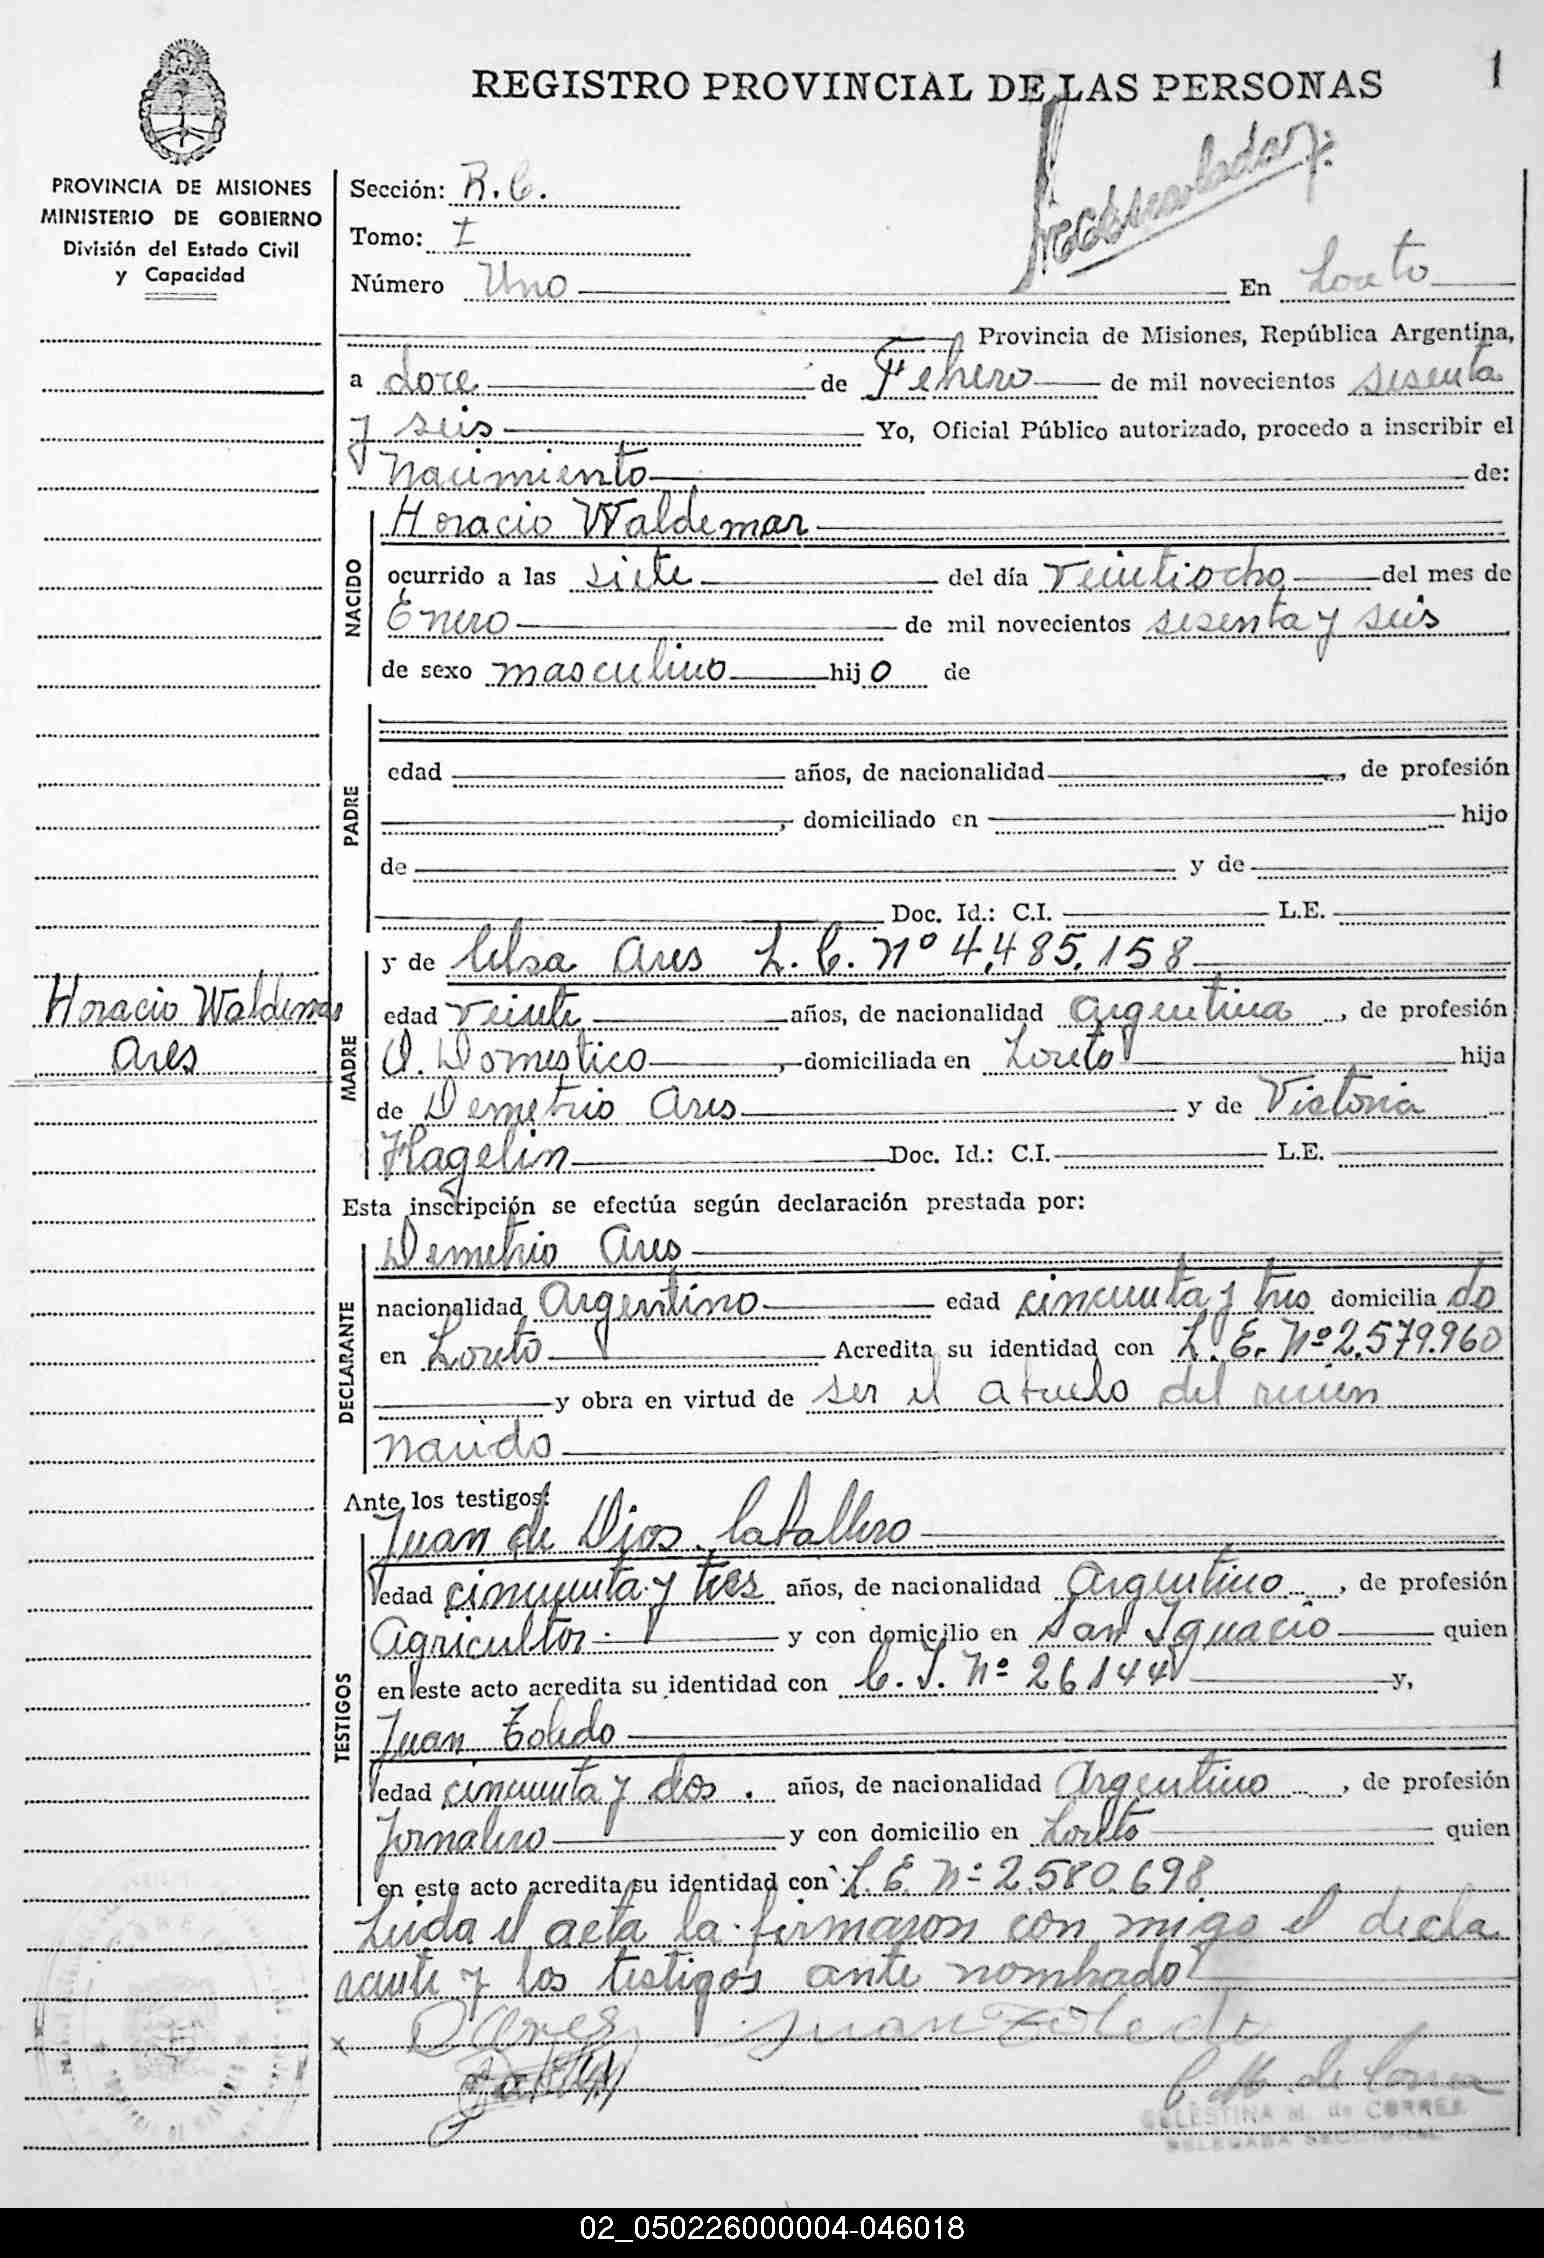 REGISTRO PROVINCIAL DE LAS PERSONAS
1
PROVINCIA DE MISIONES
MINISTERIO DE GOBIERNO
División del Estado Civil
y Capacidad
Sección: R. C.
Tomo: I
Número Uno En Loreto
Provincia de Misiones, República Argentina,
a doce de Febrero de mil novecientos sesenta
y seis Yo, Oficial Público autorizado, procedo a inscribir el
Nacimiento de:
NACIDO
Horacio Waldemar
ocurrido a las siete del día veintiocho del mes de
Enero de mil novecientos sesenta y seis
de sexo masculino hijo de
PADRE
edad años, de nacionalidad , de profesión
, domiciliado en hijo
de y de
Doc. Id.: C.I. L.E.
Horacio Waldemar
Ares
MADRE
y de Celsa Ares L. C. Nº 4,485,158
edad veinte años, de nacionalidad Argentina , de profesión
Q. Domestico , domiciliada en Loreto hija
de Demetrio Ares y de Victoria
Hagelin Doc. Id.: C.I. L.E.
Esta inscripción se efectúa según declaración prestada por:
DECLARANTE
Demetrio Ares
nacionalidad Argentino edad cincuenta y tres domiciliado
en Loreto Acredita su identidad con L. E. Nº 2.579.960
y obra en virtud de ser el abuelo del recien
nacido
Ante los testigos:
TESTIGOS
Juan de Dios Caballero
edad cincuenta y tres años, de nacionalidad Argentino , de profesión
Agricultor y con domicilio en San Ignacio quien
en este acto acredita su identidad con C. I. Nº 26144 y,
Juan Toledo
edad cincuenta y dos . años, de nacionalidad Argentino , de profesión
Jornalero y con domicilio en Loreto quien
en este acto acredita su identidad con L. E. Nº 2.580.698
Leida el acta la firmaron con migo el decla
rante y los testigos ante nombrado
x D Ares Juan Toledo
C M. de Correa
CELESTINA M. de CORREA
DELEGADA SECCIONAL
02_050226000004-046018